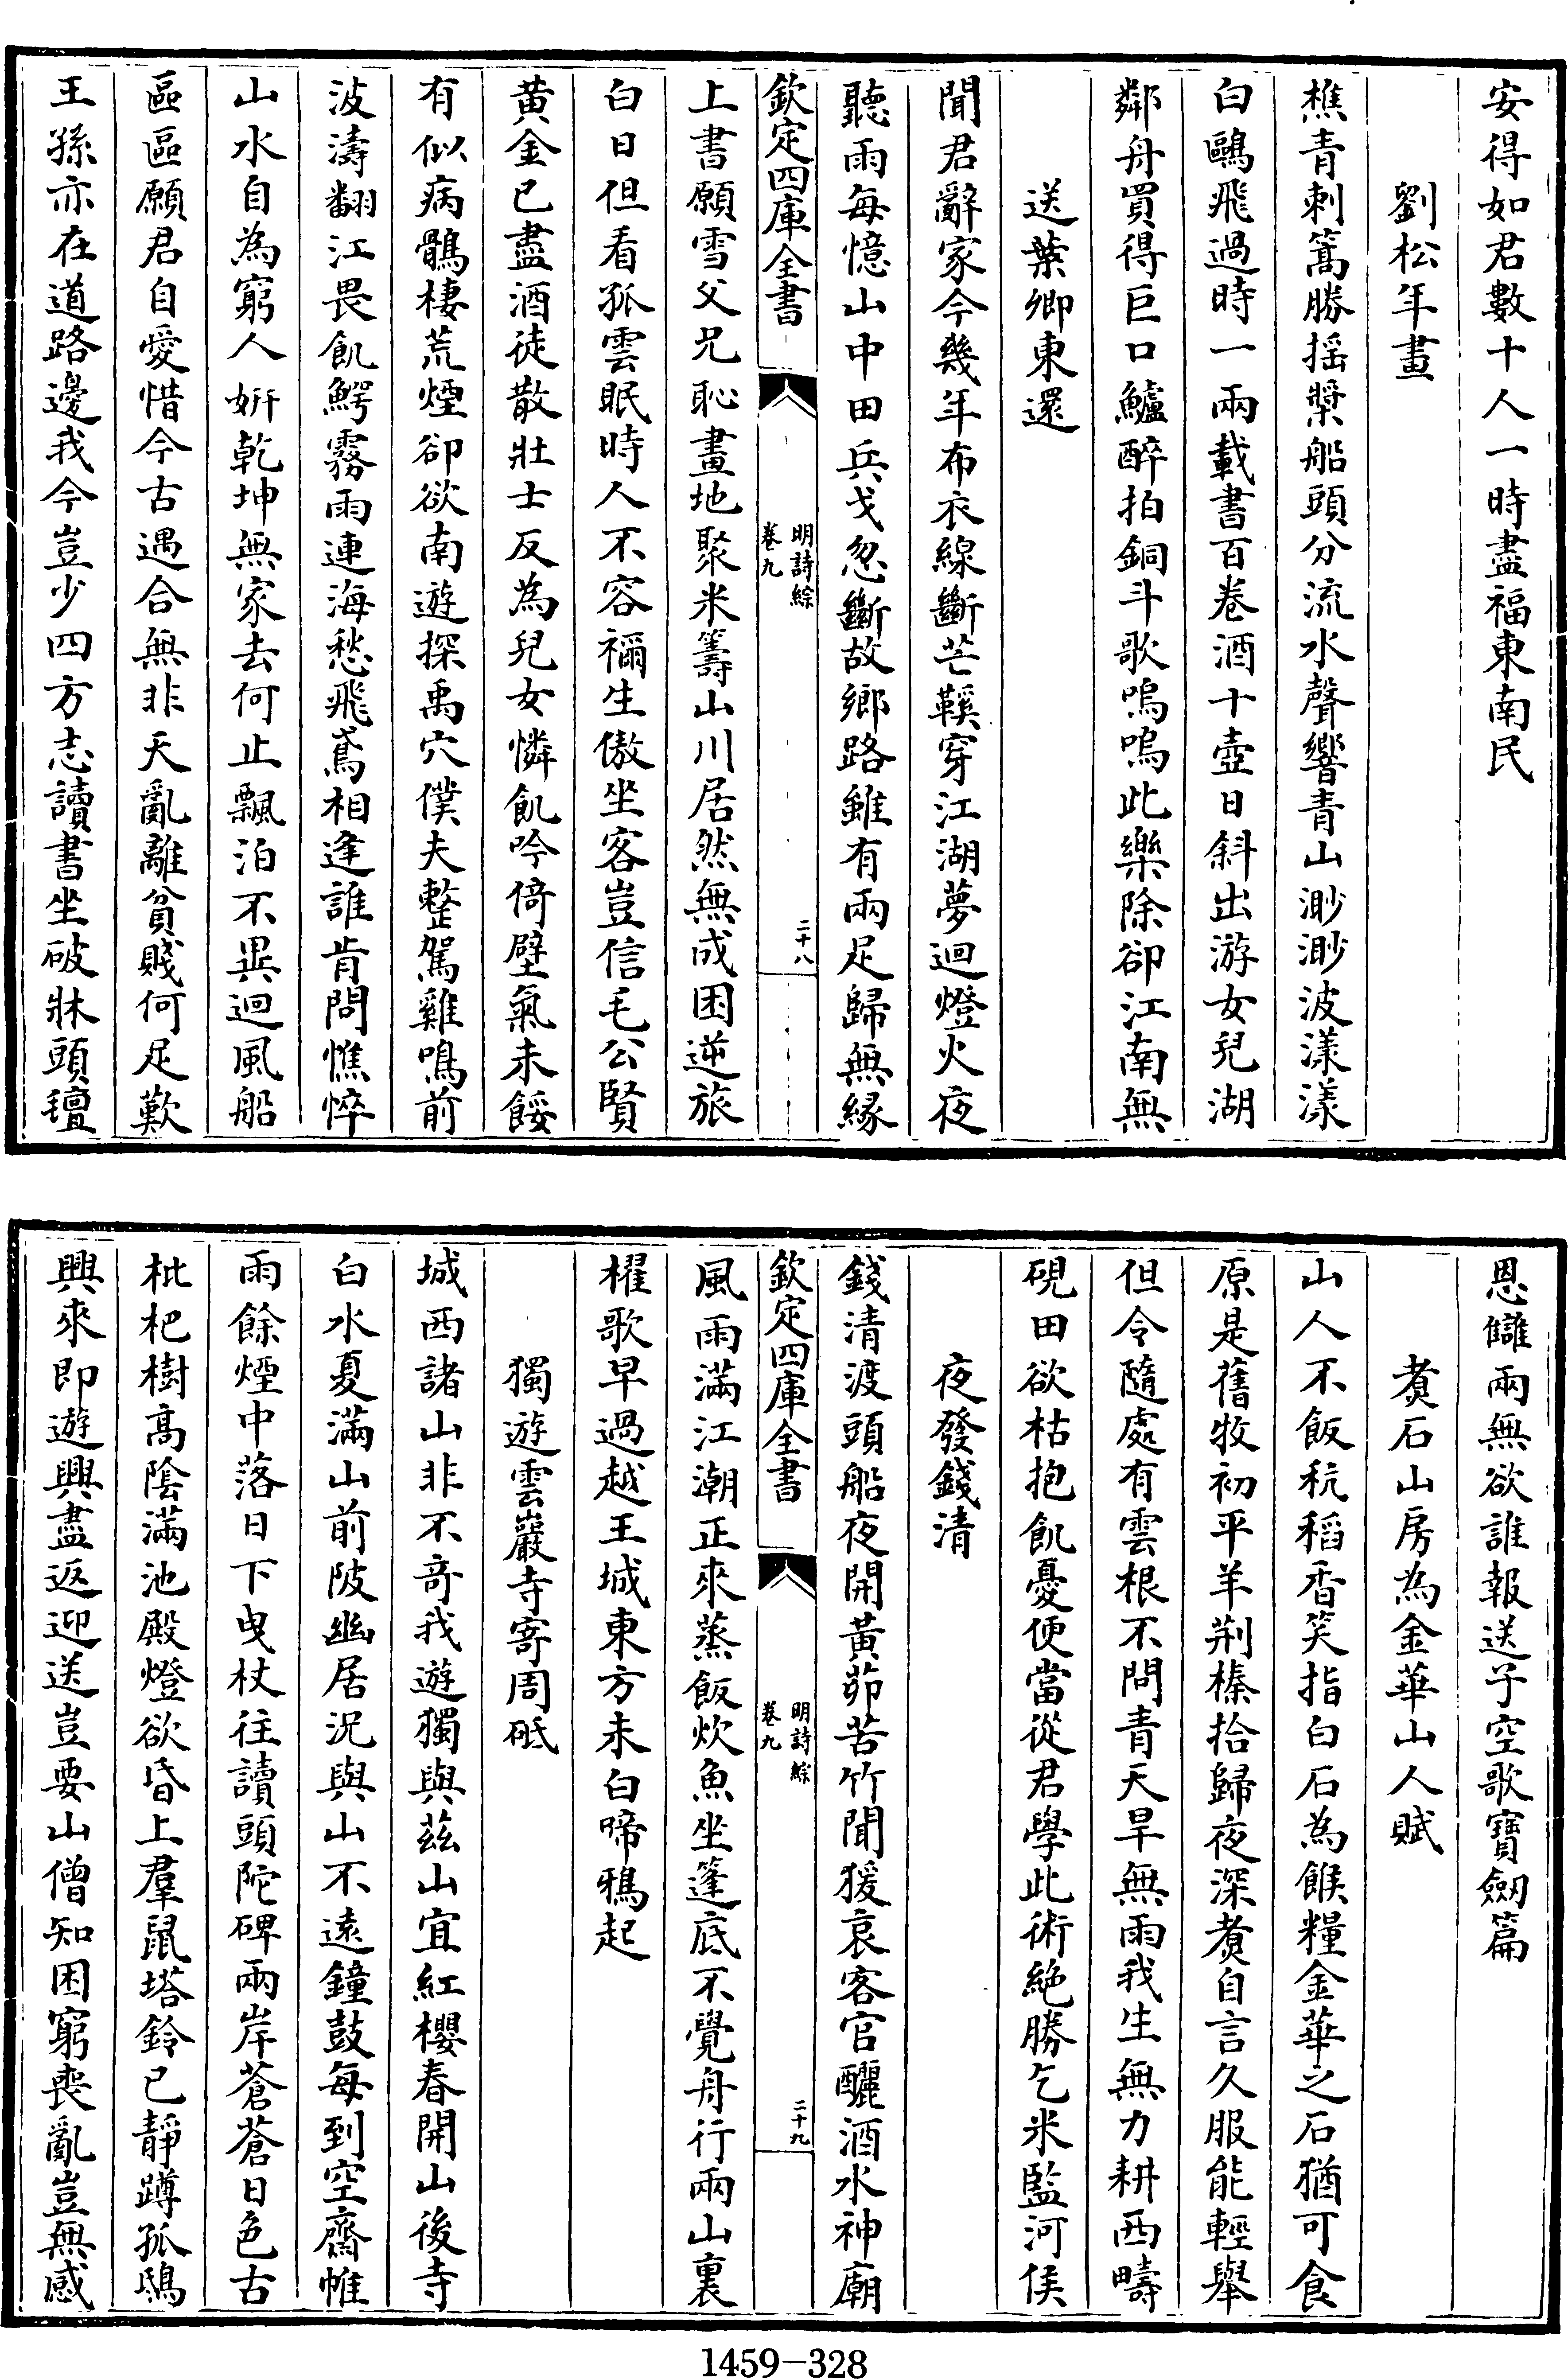 安得如君數十人一時盡福東南民
劉松年畫
樵青刺篙勝揺槳船頭分流水聲響青山渺渺波漾漾
白鷗飛過時一兩載書百卷酒十壺日斜出游女兒湖
鄰舟買得巨口鱸醉拍銅斗歌嗚嗚此樂除卻江南無
送葉卿東還
聞君辭家今幾年布衣線斷芒鞵穿江湖夢迴燈火夜
聽雨每憶山中田兵戈忽斷故鄉路雖有兩足歸無縁
欽定四庫全書
明詩綜
卷九
二十八
上書願雪父兄恥畫地聚米籌山川居然無成困逆旅
白日但看孤雲眠時人不容禰生傲坐客豈信毛公賢
黄金已盡酒徒散壯士反為兒女憐飢吟倚壁氣未餒
有似病鶻棲荒煙卻欲南遊探禹穴僕夫整駕雞鳴前
波濤翻江畏飢鰐霧雨連海愁飛鳶相逢誰肯問憔悴
山水自為窮人妍乾坤無家去何止飄泊不異迴風船
區區願君自愛惜今古遇合無非天亂離貧賤何足歎
王孫亦在道路邊我今豈少四方志讀書坐破牀頭氊
恩讎兩無欲誰報送子空歌寶劒篇
煑石山房為金華山人賦
山人不飯秔稻香笑指白石為餱糧金華之石猶可食
原是舊牧初平羊荆榛拾歸夜深煑自言久服能輕舉
但令隨處有雲根不問青天旱無雨我生無力耕西疇
硯田欲枯抱飢憂便當從君學此術絶勝乞米監河侯
夜發錢清
錢清渡頭船夜開黄茆苦竹聞猨哀客官釃酒水神廟
欽定四庫全書
明詩綜
卷九
二十九
風雨滿江潮正來蒸飯炊魚坐篷底不覺舟行兩山裏
櫂歌早過越王城東方未白啼鴉起
獨遊雲巖寺寄周砥
城西諸山非不奇我遊獨與茲山宜紅櫻春開山後寺
白水夏滿山前陂幽居況與山不遠鐘鼓每到空齋帷
雨餘煙中落日下曳杖往讀頭陀碑兩岸蒼蒼日色古
枇杷樹高陰滿池殿燈欲昏上羣鼠塔鈴已靜蹲孤鴟
興來即遊興盡返迎送豈要山僧知困窮喪亂豈無感
1459-328